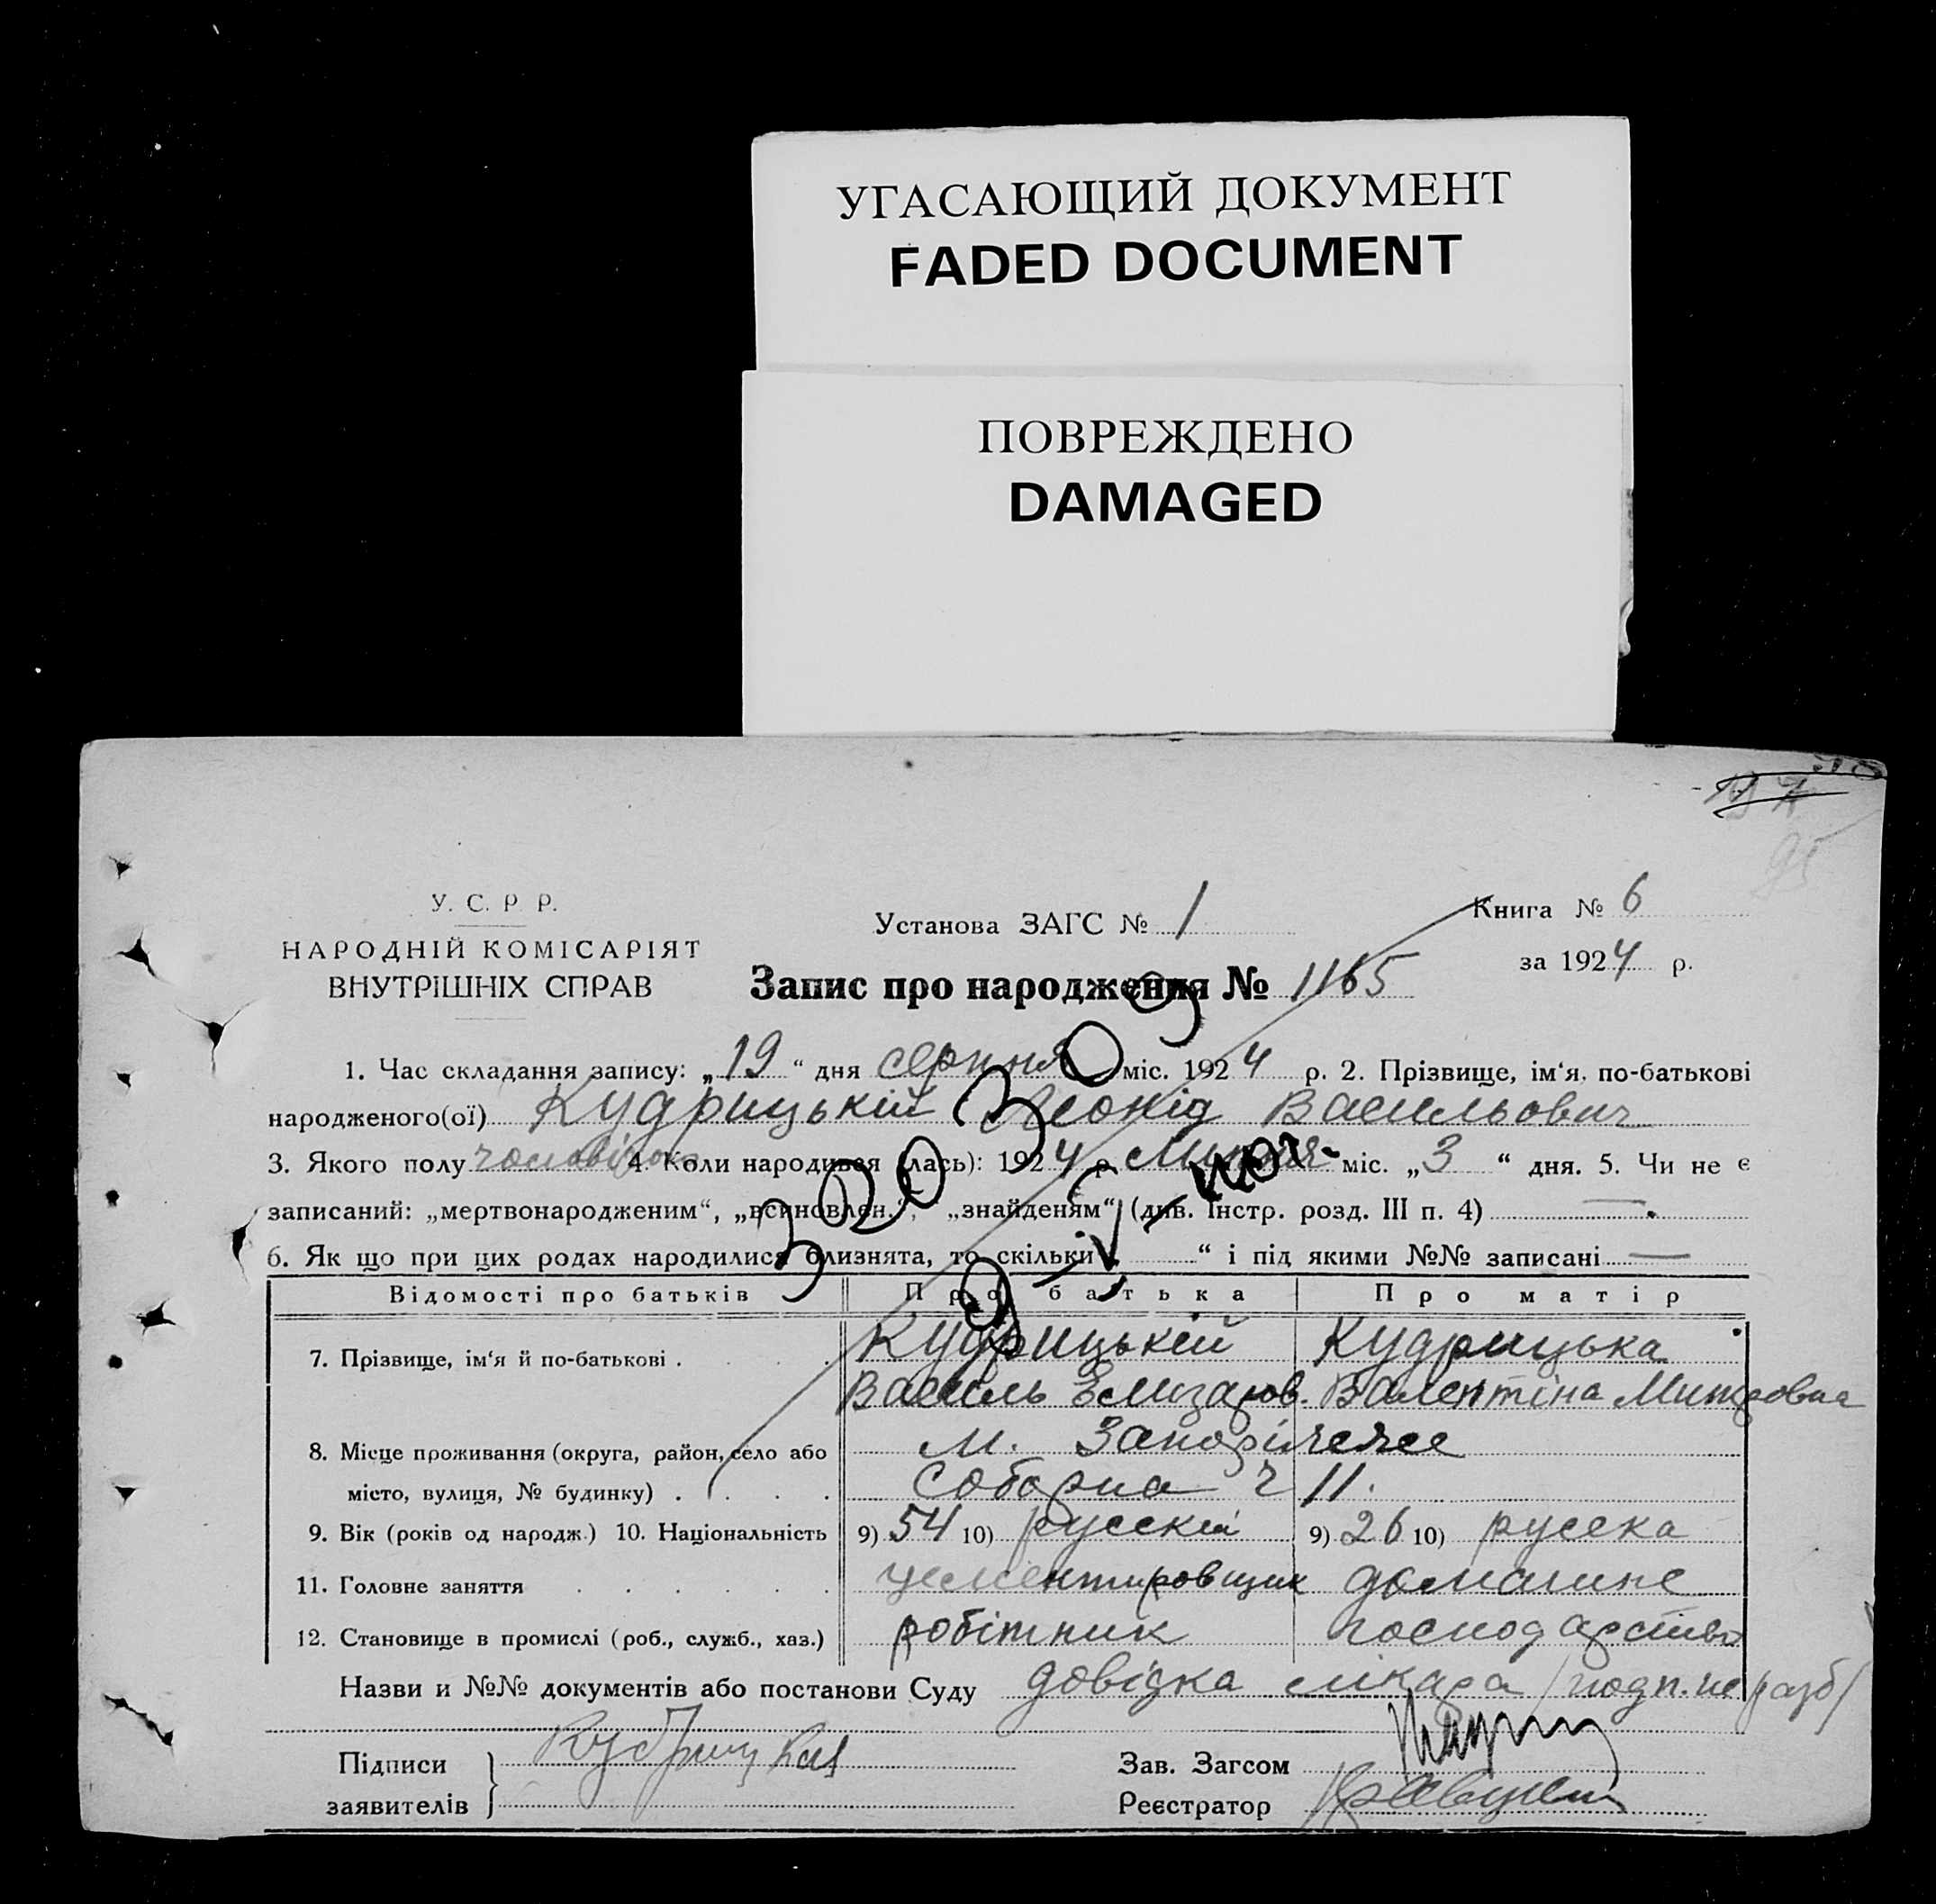 УГАСАЮЩИЙ ДОКУМЕНТ
FADED DOCUMENT
ПОВРЕЖДЕНО
DAMAGED
95
У. С. Р. Р.
НАРОДНІЙ КОМІСАРІЯТ
ВНУТРІШНІХ СПРАВ
Установа ЗАГС № 1
Книга № 6
за 1924 р.
Запис про народження № 1165
1. Час складання запису: „19“ дня серпня міс. 1924 р. 2. Прізвище, ім‘я, по-батькові
народженого(ої) Кудрицькій Леонід Васильович
3. Якого полу чоловічого 4. Коли народився (лась): 1924 р. Липня міс. „3“ дня. 5. Чи не є
записаний: „мертвонародженим“, „всиновлен.“, „знайденям“ (див. Інстр. розд. III п. 4) —
6. Як що при цих родах народилися близнята, то скільки „ “ і під якими №№ записані —
Відомості про батьків Про батька Про матір
7. Прізвище, ім‘я й по-батькові . Кудрицькій Кудрицька
Василь Елизаров. Валентіна Митровна
8. Місце проживання (округа, район, село або м. Запоріжжє
місто, вулиця, № будинку) . Соборна ч 11.
9. Вік (років од народж.) 10. Національність 9) 54 10) русскій 9) 26 10) русска
11. Головне заняття цементировщик домашне
12. Становище в промислі (роб., служб., хаз.) робітник господарство
Назви и №№ документів або постанови Суду довідка лікаря /подп. не разб/
Підписи Кудрицкая
заявителів
Зав. Загсом
Реєстратор